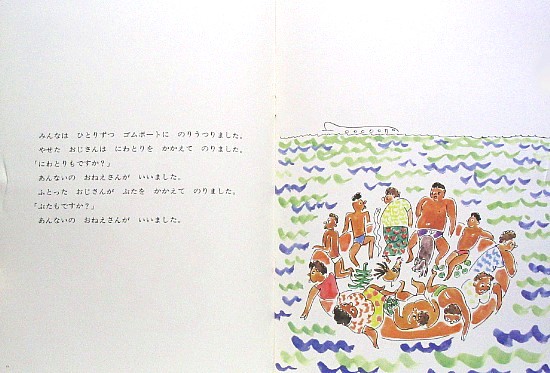 みんなは　ひとりずつ　ゴムボートに　のりうつりました。
やせた　おじさんは　にわとりを　かかえて　のりました。
「にわとりもですか？」
あんないの　おねえさんが　いいました。
ふとった　おじさんが　ぶたを　かかえて　のりました。
「ぶたもですか？」
あんないの　おねえさんが　いいました。